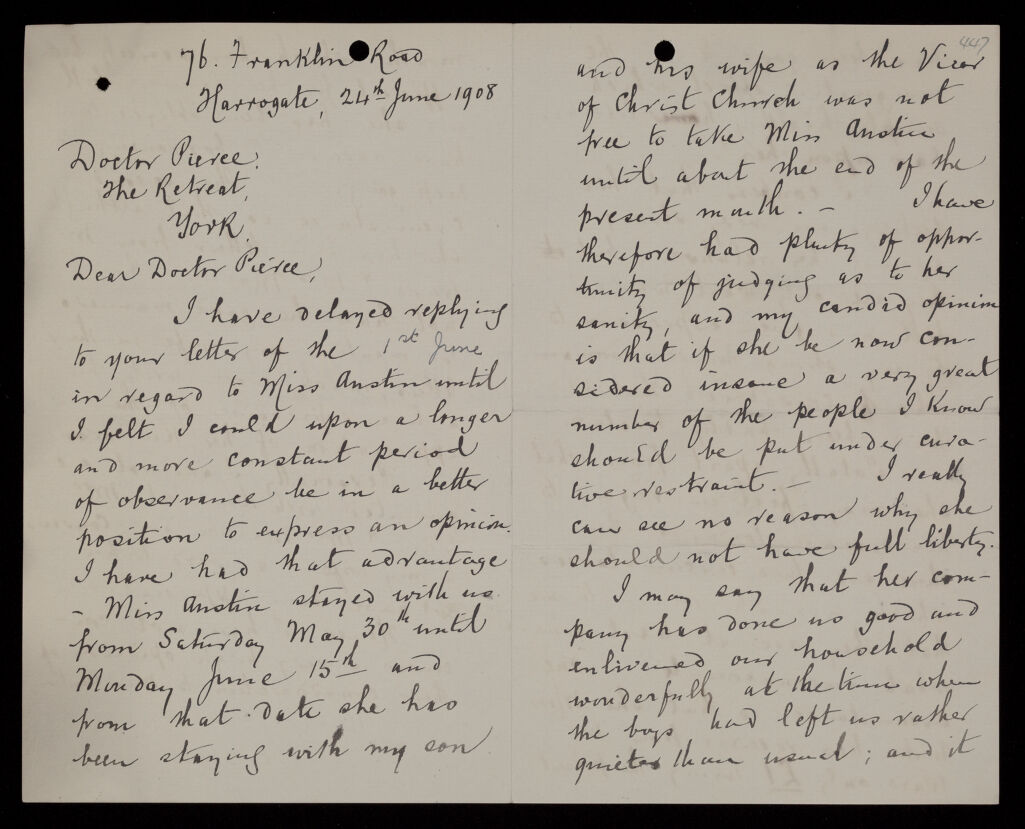 76. Franklin Road
Harrogate, 24th June 1908
Doctor Pierce.
The Retreat,
York.
Dear Doctor Pierce,
I have delayed replying
to your letter of the 1st June
in regard to Miss Austin until
I felt I could upon a longer
and more constant period
of observance be in a better
position to express an opinion.
I have had that advantage
- Miss Austin stayed with us
from Saturday May 30th until
Monday June 15th and
from that date she has
been staying with my son
447
and his wife as the Vicar
of Christ Church was not
free to take Miss Austin
until about the end of the
present month. - I have
therefore had plenty of oppor-
tunity of judging as to her
sanity, and my candid opinion
is that if she be now con-
sidered insane a very great
number of the people I know
should be put under cura-
tive restraint. - I really
can see no reason why she
should not have full liberty.
I may say that her com-
pany has done us good and
enlivened our household
wonderfully at the time when
the boys had left us rather
quieter than usual; and it